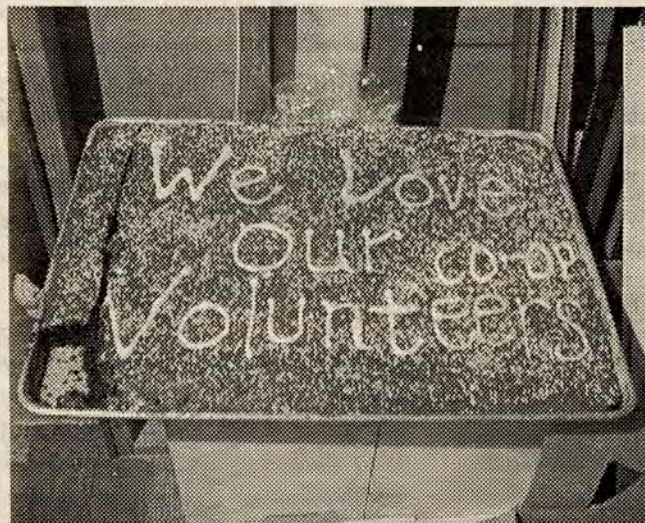 We Love
Our CO-OP
Volunteers